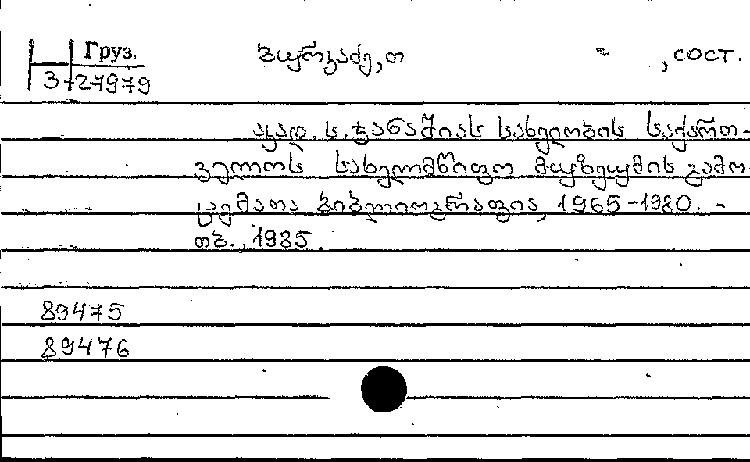 Груз.
3-27979
, сост.
აკად. ს. ჯანაშიას სახელობის საქართ-
ველოს სახელმწიფო მუზეუმის გამო-
ცემათა ბიბლიოგრაფია, 1965-1980. -
თბ., 1985.
89475
89476